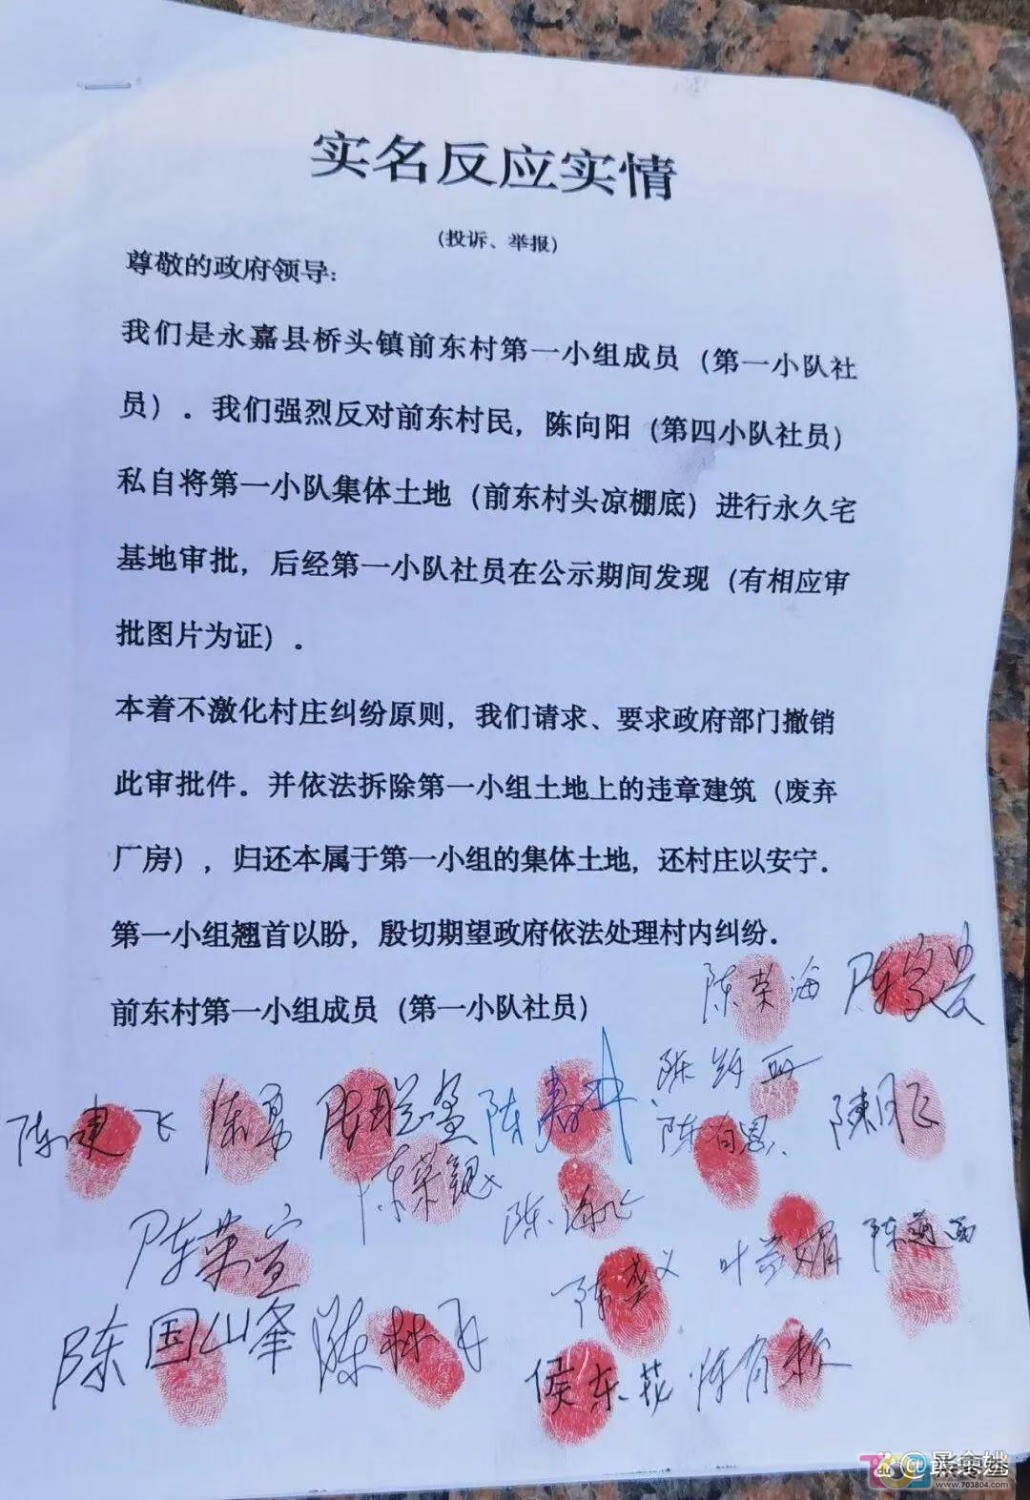 实名反应实情
(投诉、举报)
尊敬的政府领导:
我们是永嘉县桥头镇前东村第一小组成员（第一小队社
员）. 我们强烈反对前东村民, 陈向阳（第四小队社员）
私自将第一小队集体土地（前东村头凉棚底）进行永久宅
基地审批, 后经第一小队社员在公示期间发现（有相应审
批图片为证）.
本着不激化村庄纠纷原则, 我们请求、要求政府部门撤销
此审批件. 并依法拆除第一小组土地上的违章建筑（废弃
厂房）, 归还本属于第一小组的集体土地, 还村庄以安宁.
第一小组翘首以盼, 殷切期望政府依法处理村内纠纷.
前东村第一小组成员（第一小队社员）
陈荣海
陈建飞 陈勇 陈联盈
陈海飞
陈荣宣
陈国峰
侯东花
703804
www.703804.com